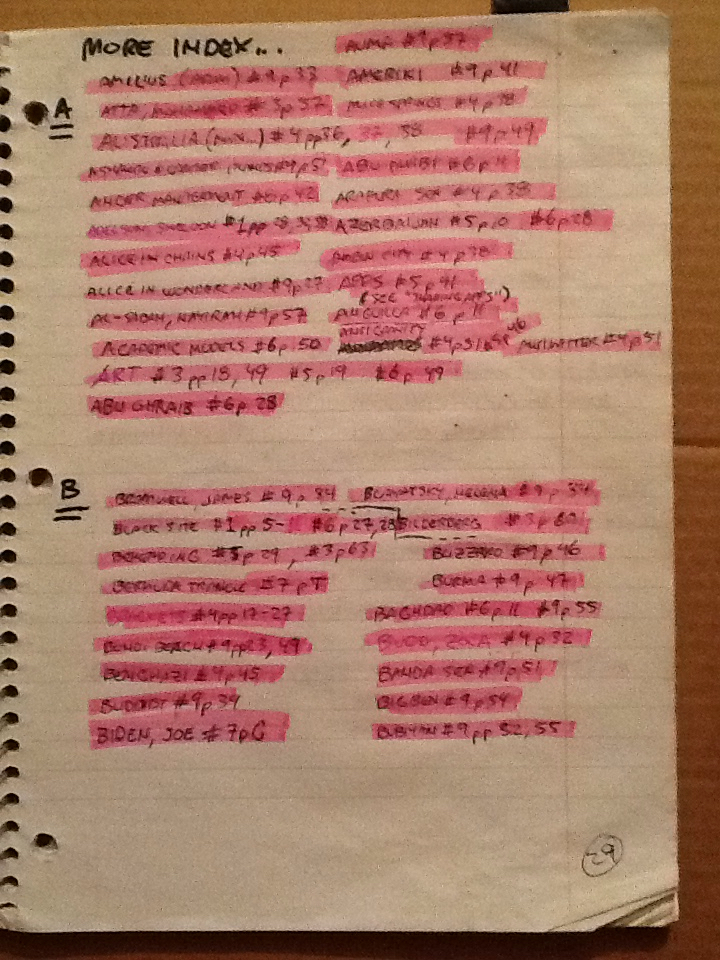 MORE INDEX...
ALMA #9p37
A
AMELIUS #9p33 AMERIKI #9p.41
ATTA, MUHAMMED #3p37 #4p38
AUSTRALIA #4pp36, 37, 38 #9p49
ABU DHABI #6p11
ANGER MANAGEMENT #6p42 ARAFURA SEA #4p.38
SALOON #1pp AZERBAIJAN #5p10 #6p28
ALICE IN CHAINS #4p45 CITY #4p38
ALICE IN WONDERLAND #9p27 APES #5p41
(SEE "
AL-SABAH, NAYIRAH #9p57 ANGUILLA #6p11
ACADEMIC MODELS #6p.50 #4p51 ANTIMATTER #4p51
ART #3pp18, 49 #5p19 #6p49
ABU GHRAIB #6p28
B
BRAMWELL, JAMES #9p.34 BLAVATSKY, HELENA #9p34
BLACK SITE #1pp5-11 #6p27,28 BILDERBERG #3p60
#5p29, #3p63 BUZZARD #9p46
BERMUDA TRIANGLE #7pT BURMA #9p47
#4pp17-27 BAGHDAD #6p11 #9p55
BONDI BEACH #9pp23, 49 BUDD, ZOLA #4p32
BENGHAZI #4p45 BANDA SEA #9p51
BUDDHA #9p34 BIG BEN #9p54
BIDEN, JOE #7pG BUBIYAN #9pp52, 55
29